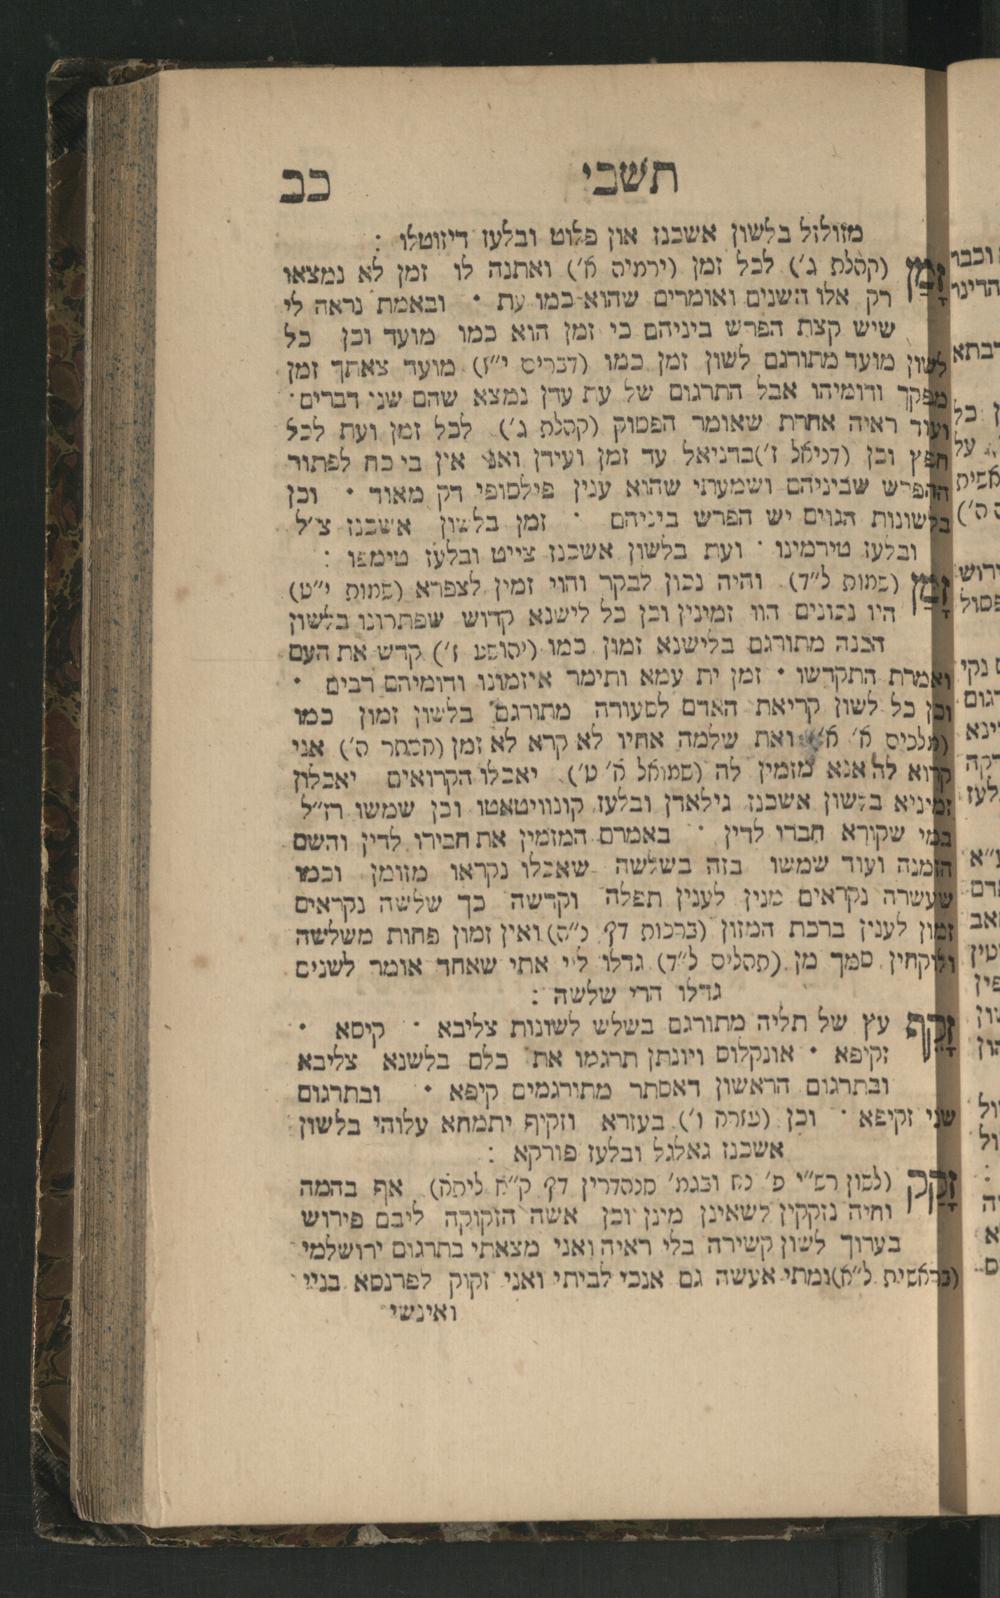 תשבי כב
מזולזל בלשון אשכנז און פלוט ובלעז דיזוטלו :
זמן (קהלת ג') לכל זמן (ירמיה א') ואתנה לו זמן לא נמצאו
רק אלו השנים ואומרים שהוא כמו עת · ובאמת נראה לי
שיש קצת הפרש ביניהם כי זמן הוא כמו מועד וכן כל
לשון מועד מתורגם לשון זמן כמו (דברים י"ז) מועד צאתך זמן
מפקך ודומיהו אבל התרגום של עת עדן נמצא שהם שני דברים ·
ועוד ראיה אחרת שאומר הפסוק (קהלת ג') לכל זמן ועת לכל
חפץ וכן (דניאל ז') בדניאל עד זמן ועידן ואני אין בי כח לפתור
ההפרש שביניהם ושמעתי שהוא ענין פילסופי דק מאוד · וכן
בלשונות הגוים יש הפרש ביניהם · זמן בלשון אשכנז צ'ל
ובלעז טירמינו · ועת בלשון אשכנז צייט ובלעז טימפו :
זמן (שמות ל"ד) והיה נכון לבקר והוי זמין לצפרא (שמות י"ט)
היו נכונים הוו זמינין וכן כל לישנא קדוש שפתרונו בלשון
הכנה מתורגם בלישנא זמון כמו (יהושע ז') קדש את העם
ואמרת התקדשו · זמן ית עמא ותימר איזמונו ודומיהם רבים ·
וכן כל לשון קריאת האדם לסעודה מתורגם בלשון זמון כמו
(מלכים א' א') ואת שלמה אחיו לא קרא לא זמן (אסתר ה') אני
קרוא לה אנא מזמין לה (שמואל א' ט') יאכלו הקרואים יאכלון
זמיניא בלשון אשכנז גילאדן ובלעז קונוויטאטו וכן שמשו רז"ל
במי שקורא חברו לדין · באמרם המזמין את חבירו לדין והשם
הזמנה ועוד שמשו בזה בשלשה שאכלו נקראו מזומן וכמו
שעשרה נקראים מנין לענין תפלה וקדשה כך שלשה נקראים
זמון לענין ברכת המזון (ברכות דף מ"ה) ואין זמון פחות משלשה
ולוקחין סמך מן (תהלים ל"ד) גדלו ליי אתי שאחד אומר לשנים
גדלו הרי שלשה :
זקף עץ של תליה מתורגם בשלש לשונות צליבא · קיסא ·
זקיפא · אונקלוס ויונתן תרגמו את כלם בלשנא צליבא
ובתרגום הראשון דאסתר מתורגמים קיפא · ובתרגום
שני זקיפא · וכן (עזרה ו') בעזרא וזקיף יתמחא עלוהי בלשון
אשכנז גאלגל ובלעז פורקא :
זקק (לשון רש"י פ' נח ובגמ' סנהדרין דף ק"ח ליתא) אף בהמה
וחיה נזקקין לשאינן מינן וכן אשה הזקוקה ליבם פירוש
בערוך לשון קשירה בלי ראיה ואני מצאתי בתרגום ירושלמי
(בראשית ל"א) ומתי אעשה גם אנכי לביתי ואני זקוק לפרנסא בניי
ואינשי